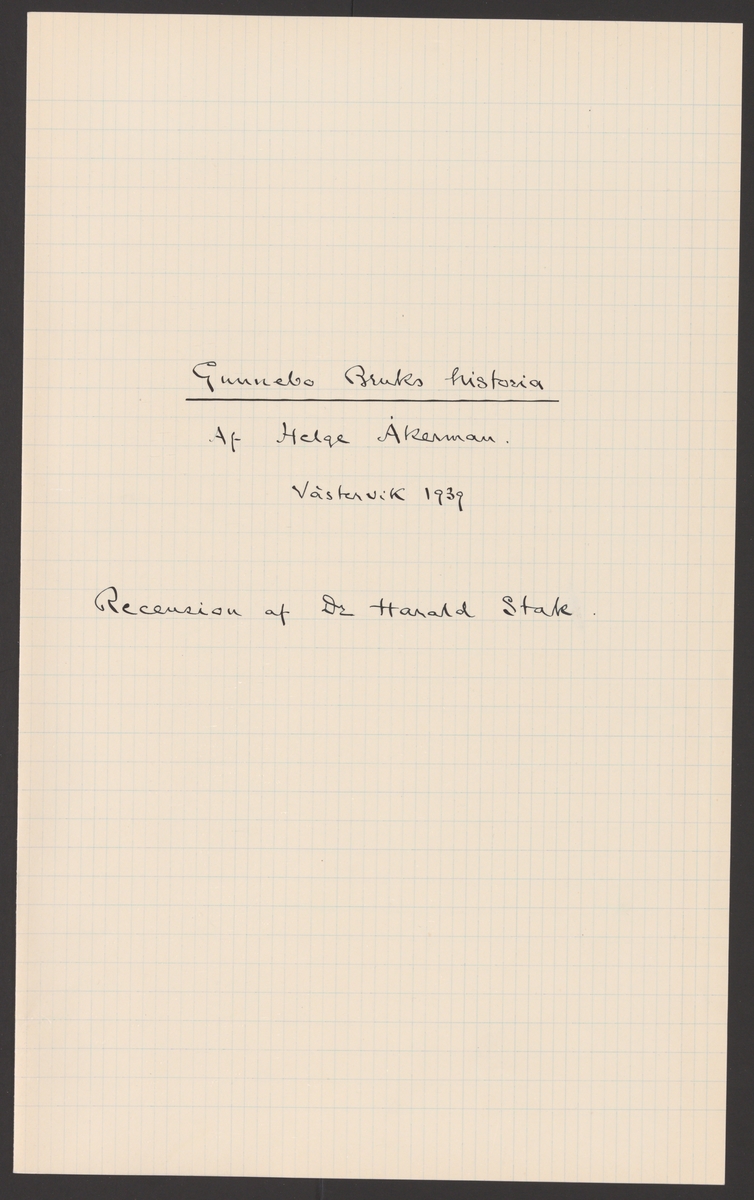 Gunnebo Bruks historia
Af Helge Åkerman.
Västervik 1939
Recension af Dr Harald Stak.